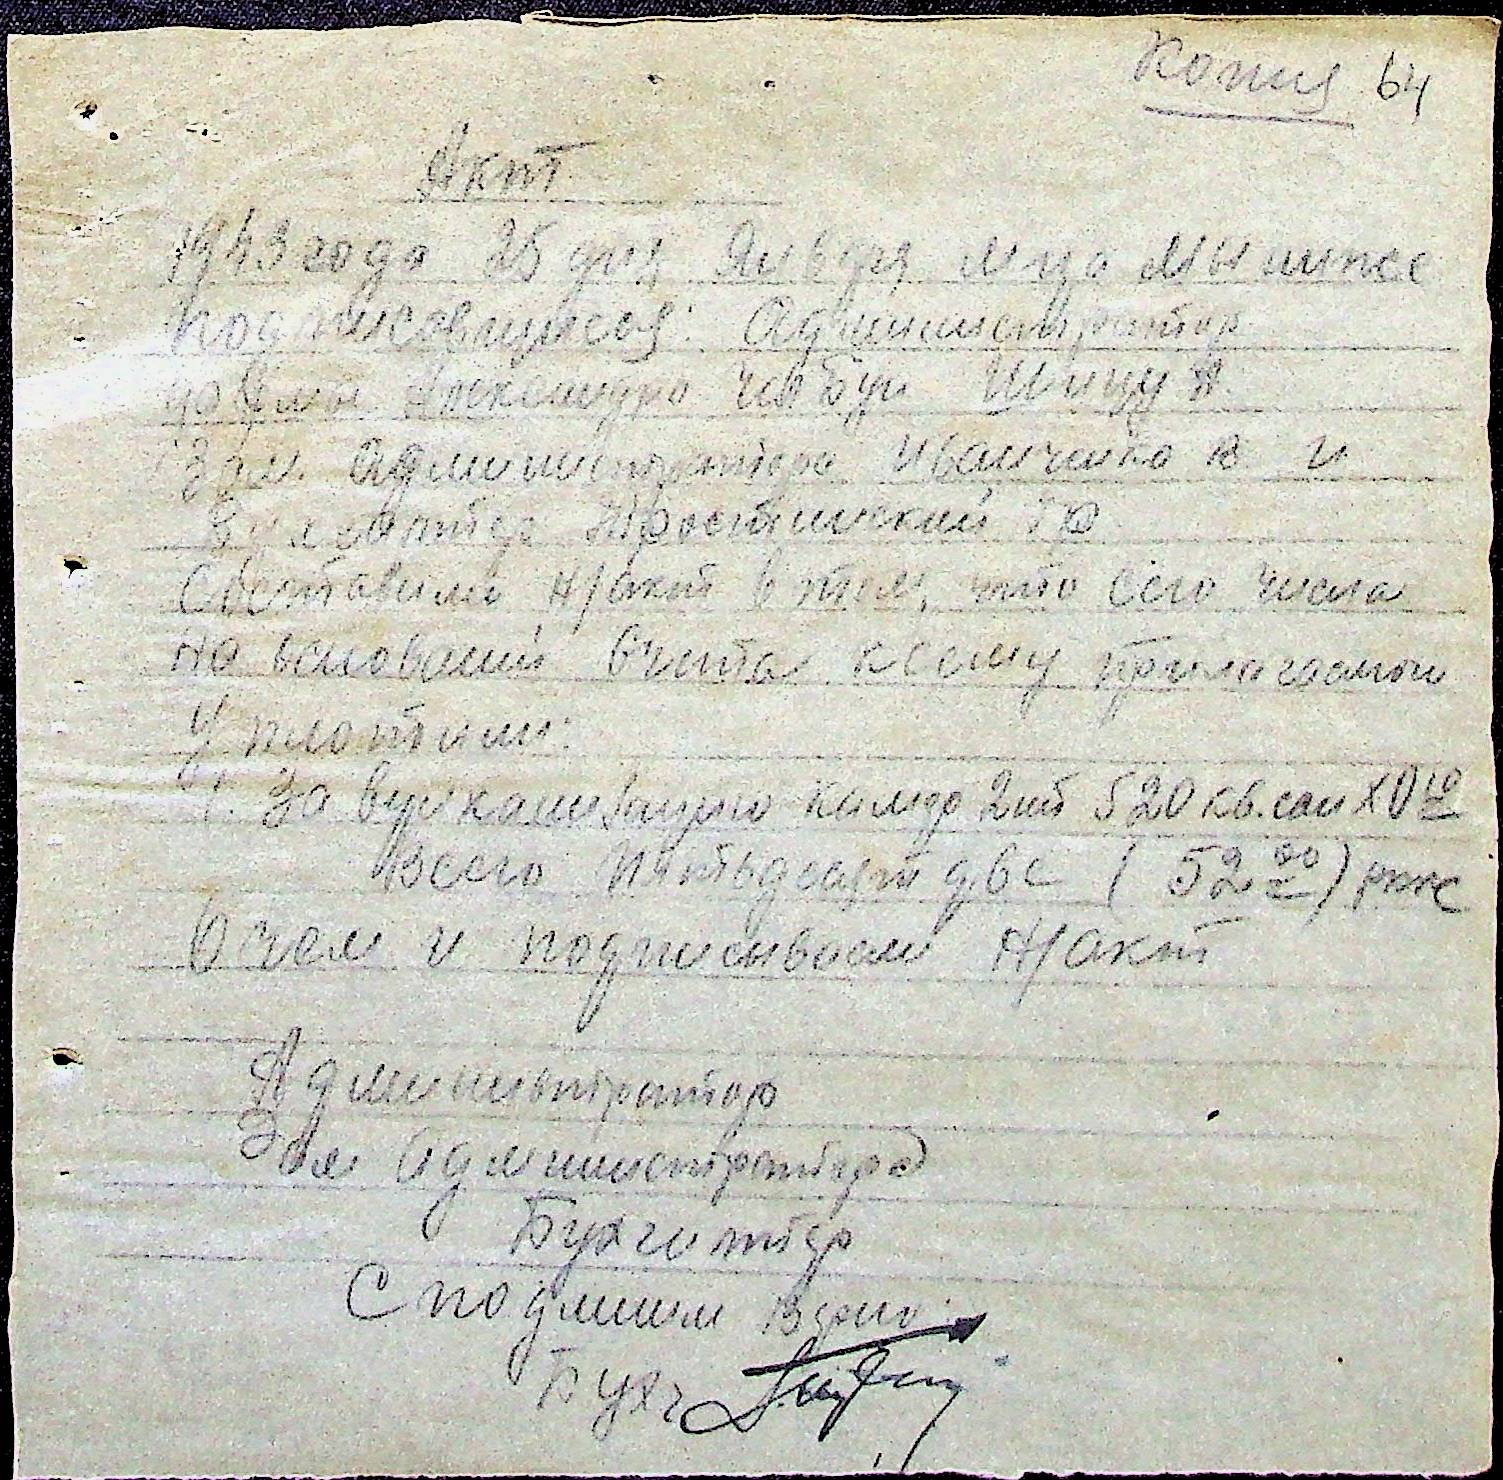 Копия 64
Акт
1943 года 25 дня Января м-ца Мы ниже
подписавшиеся: Администратор
Александра Шицу А.
Зам. Администратора Иванченко В и
Бухгалтер
Составили н/акт в том, что сего числа
на основании счета к сему прилагаемом
Уплатили:
1. За вулканизацию камер 2шт 520 кв. сан X 0 10
Всего Пятьдесят две (52 00) рмк
О чем и подписываем н/акт
Администратор
Зам Администратора
Бухгалтер
С подлинным верно:
Бухг